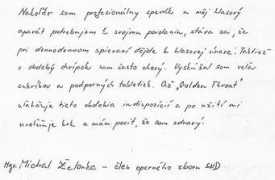 Nakoľko som profesionálny spevák a môj hlasový
aparát potrebujem k svojmu povolaniu, stáva sa, že
pri dennodennom spievaní dôjde k hlasovej únave. Taktiež
v období chrípok som často chorý. Vyskúšal som veľa
cukríkov a podporných tabletiek. Až „Golden Throat"
uľahčuje tieto obdobia indispozícií a po užití mi
uvoľňuje krk a mám pocit, že som zdravý.
Mgr. Michal Želonka – člen operného zboru SND